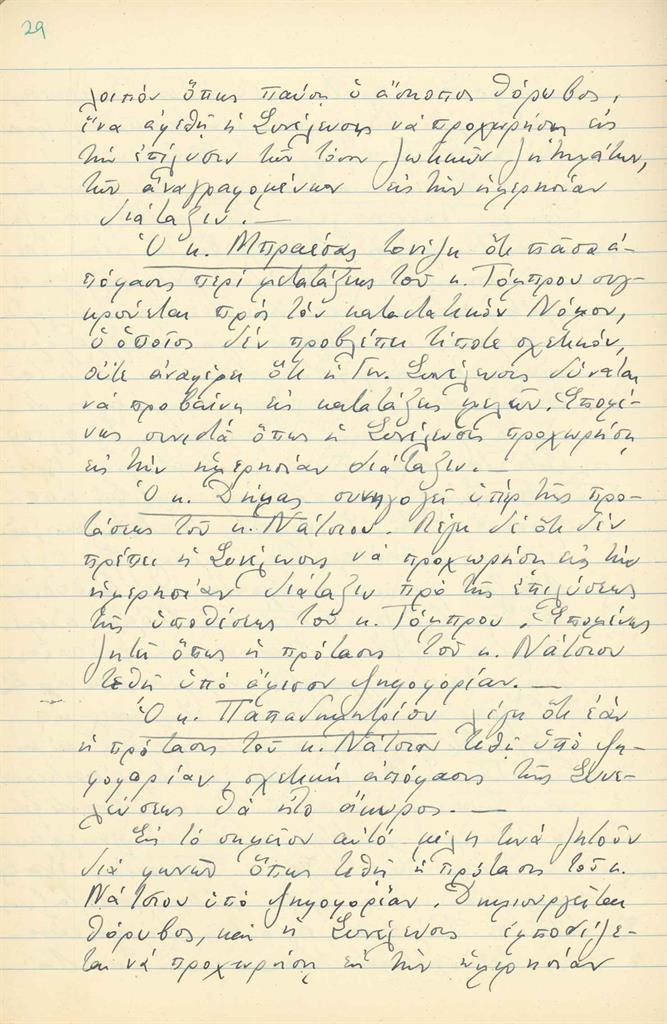 29
λοιπὸν ὅπως παύσῃ ὁ ἄσκοπος θόρυβος,
ἵνα ἀφεθῇ ἡ Συνέλευσις νὰ προχωρήσῃ εἰς
τὴν ἐπίλυσιν τῶν τόσον ζωτικῶν ζητημάτων,
τῶν ἀναγραφομένων εἰς τὴν ἡμερησίαν
διάταξιν. —
Ὁ κ. Μπραέσας τονίζει ὅτι πᾶσα ἀ-
πόφασις περὶ μετατάξεως τοῦ κ. Τόμπρου συγ-
κρούεται πρὸς τὸν καταστατικὸν Νόμον,
ὁ ὁποῖος δὲν προβλέπει τίποτε σχετικόν,
οὔτε ἀναφέρει ὅτι ἡ Γεν. Συνέλευσις δύναται
νὰ προβαίνῃ εἰς κατατάξεις μελῶν. Ἑπομέ-
νως συνιστᾷ ὅπως ἡ Συνέλευσις προχωρήσῃ
εἰς τὴν ἡμερησίαν διάταξιν. —
Ὁ κ. Δήμας συνηγορεῖ ὑπὲρ τῆς προ-
τάσεως τοῦ κ. Νάτσιου. Λέγει δὲ ὅτι δὲν
πρέπει ἡ Συνέλευσις νὰ προχωρήσῃ εἰς τὴν
ἡμερησίαν διάταξιν πρὸ τῆς ἐπιλύσεως
τῆς ὑποθέσεως τοῦ κ. Τόμπρου. Ἑπομένως
ζητεῖ ὅπως ἡ πρότασις τοῦ κ. Νάτσιου
τεθῇ ὑπὸ ἄμεσον ψηφοφορίαν. —
Ὁ κ. Παπαδημητρίου λέγει ὅτι ἐὰν
ἡ πρότασις τοῦ κ. Νάτσιου τεθῇ ὑπὸ ψη-
φοφορίαν, σχετικὴ ἀπόφασις τῆς Συνε-
λεύσεως θὰ ἦτο ἄκυρος. —
Εἰς τὸ σημεῖον αὐτὸ μέλη τινὰ ζητοῦν
διὰ φωνῶν ὅπως τεθῇ ἡ πρότασις τοῦ κ.
Νάτσιου ὑπὸ ψηφοφορίαν. Δημιουργεῖται
θόρυβος, καὶ ἡ Συνέλευσις ἐμποδίζε-
ται νὰ προχωρήσῃ εἰς τὴν ἡμερησίαν